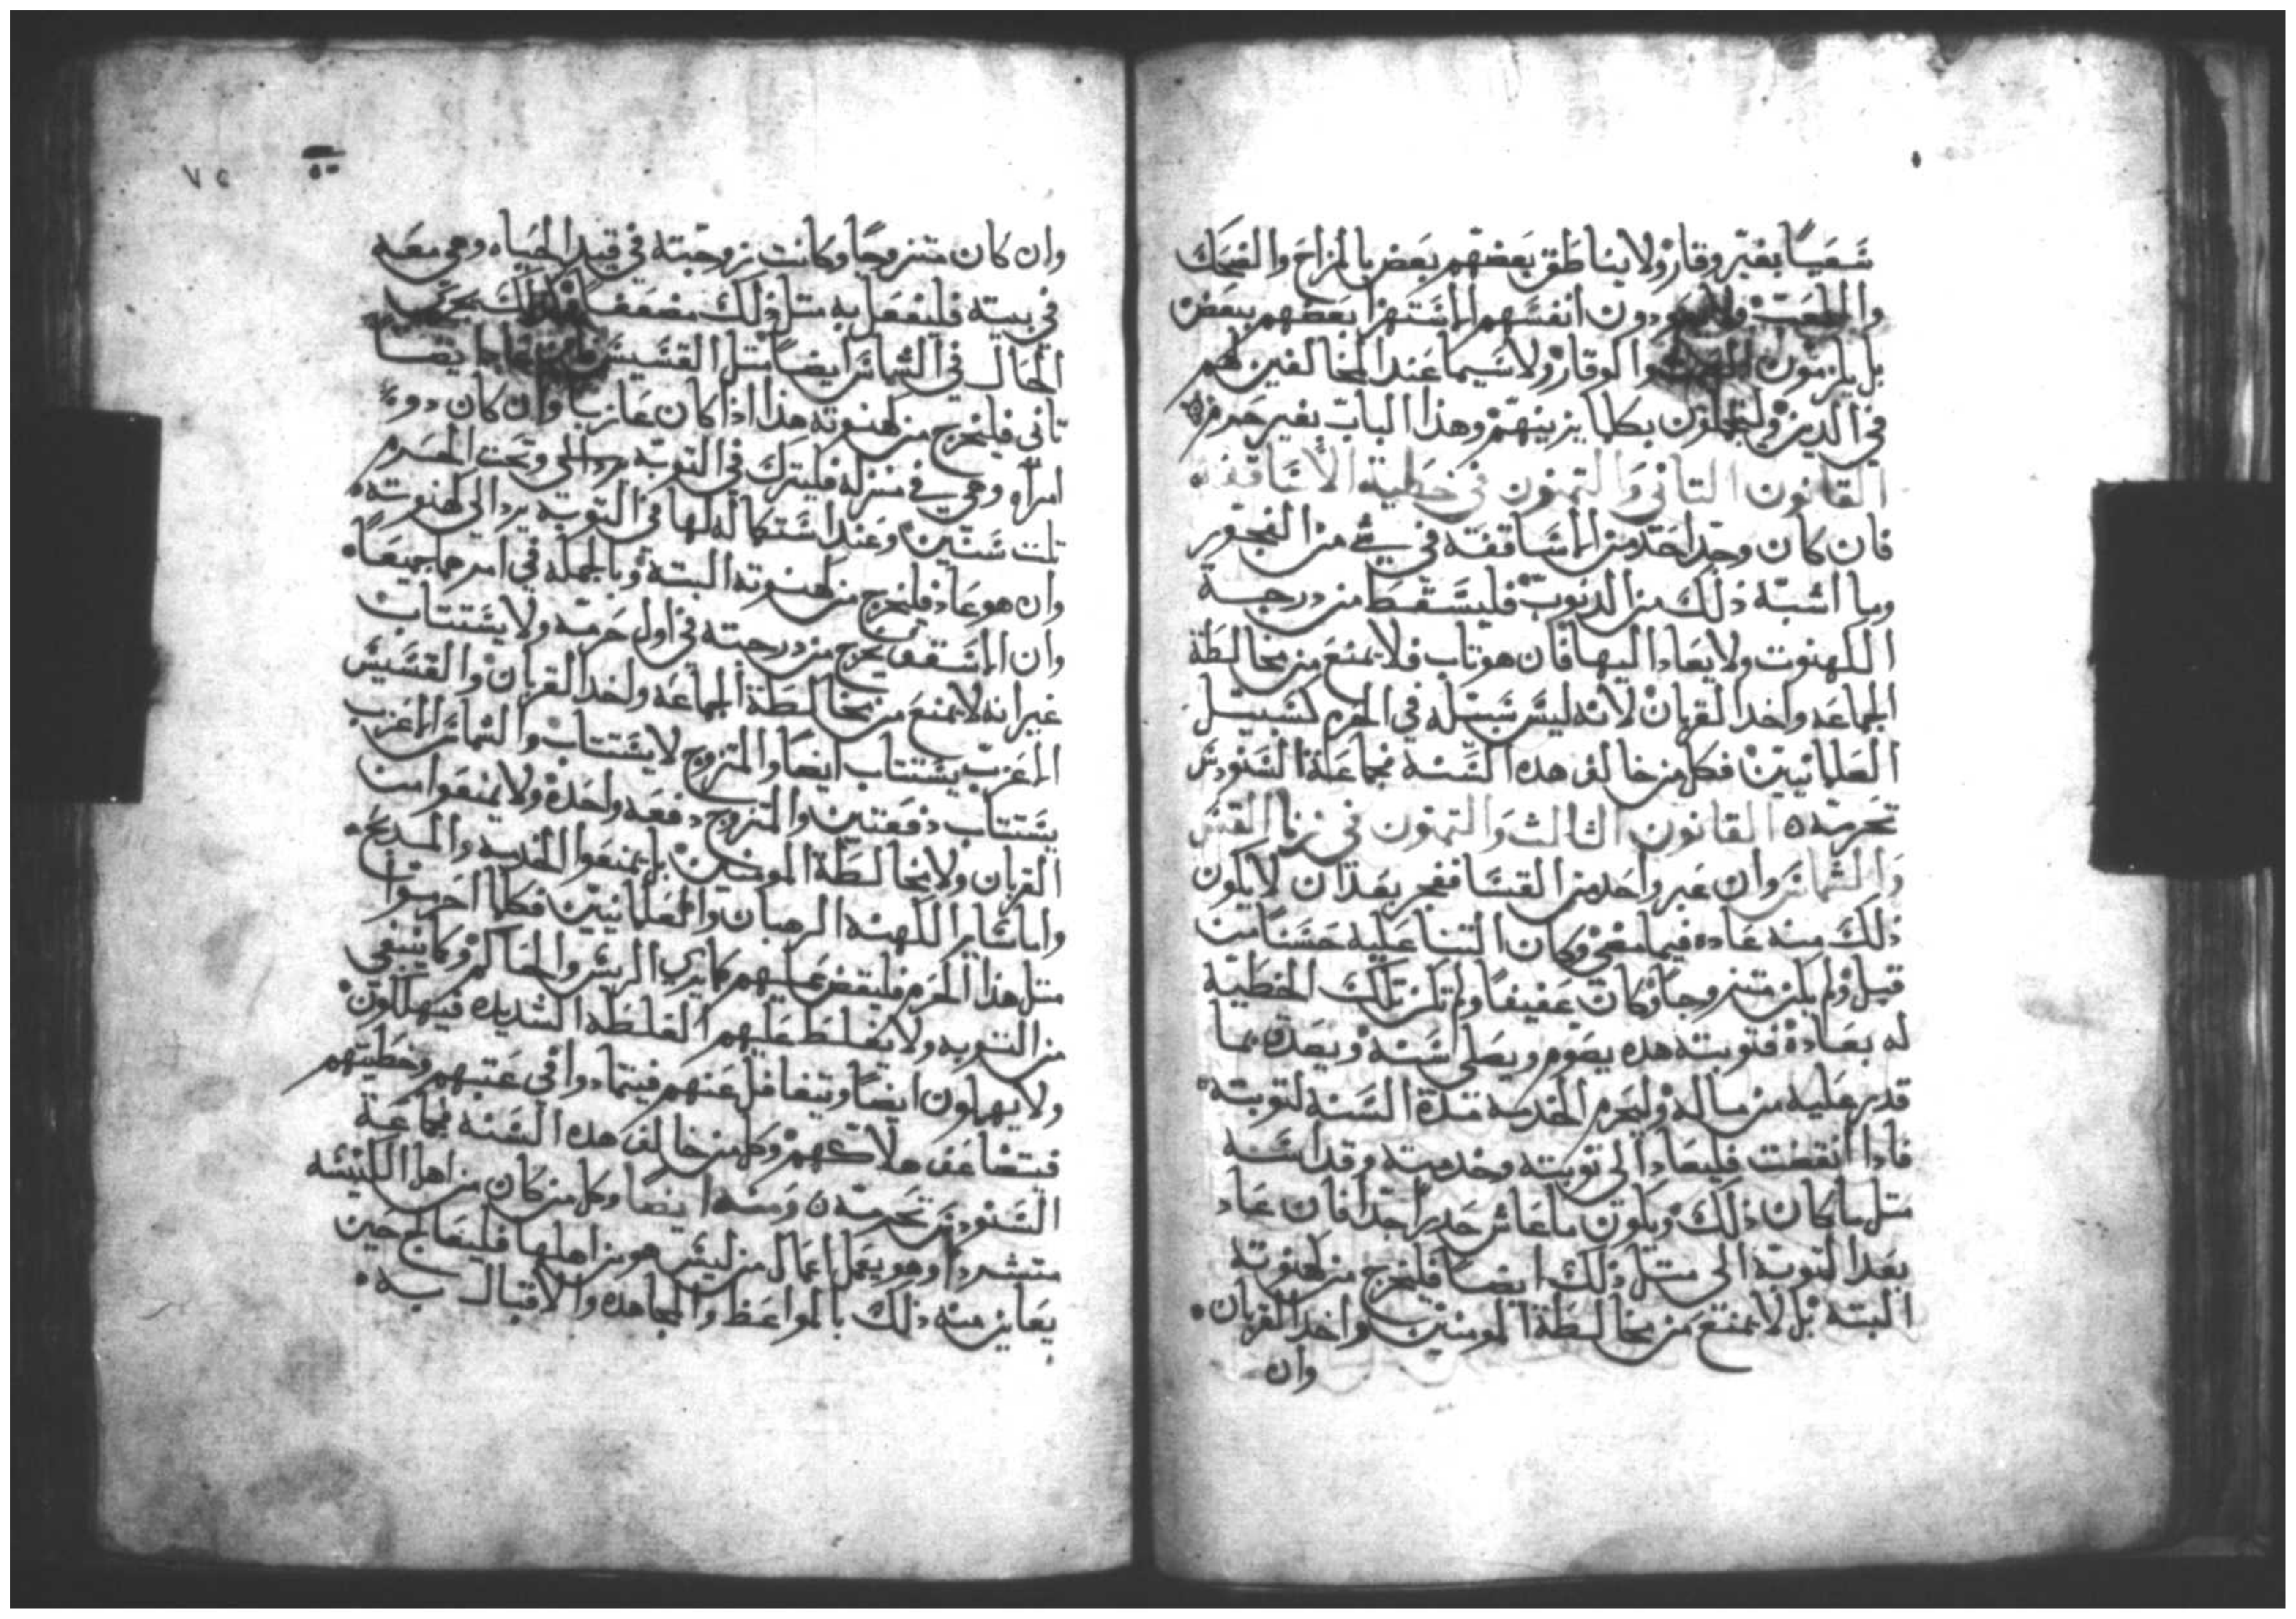 شعيًا بغير وقار ولا يناطق بعضهم بعض بالمزاح والضحك
واللعب ولا يعودون انفسهم الاستهزا بعضهم ببعض
بل يلزمون والوقار ولا سيما عند المخالفين لهم
في الدين وليتجملون بكلما يزينهم وهذا الباب بغير حرم
القانون التاني والتمنون في خطية الاساقفه
فان كان وجد احد من الاساقفه في شي من الفجور
وما اشبه ذلك من الدنوب فليسقط من درجة
الكهنوت ولا يعاد اليها فان هو تاب فلا يمنع من مخالطة
الجماعه واخد القربان لانه ليس سبيله في الحرم كسبيل
العلمانيين فكل من خالف هده السنة فجماعة السنودس
تحرمه ٥ القانون الثالث والتمنون في زنا القس
والشماس وان عبر واحد من القسا ففجر بعد ان لا يكون
ذلك منه عاده فيما مضى وكان التنا عليه حسنا من
قبل ولم يكن متزوجا وكان عفيفا ولم تكن تلك الخطية
له بعادة فتوبته هده يصوم ويصلي سنة ويصدق بما
قدر عليه من ماله وليحرم الخدمه مدة السنه لتوبته
فادا انقضت فليعاد الى توبته وخدمته وقداسه
متل ما كان ذلك ويكون ما عاش حدرا جدا فان عاد
بعد التوبه الى متل ذلك ايضا فليخرج من كهنوته
البته بل لا يمنع من مخالطة المومنين واخد القربان
وان
٧٥
وان كان متزوجا وكانت زوجته في قيد الحياه وهي معه
في بيته فليفعل به متل ذلك مضعف وكذلك يجري
الحال في الشماس ايضا متل القسيس ايضا
تاني فليخرج من كهنوته هذا اذا كان عازبا وان كان دو
امراه وهي في منزله فليترك في التوبه وتحت الحرم
تلت سنين وعند استكماله لها في التوبه يرد الى كهنوته
وان هو عاد فليخرج من كهنوته البتة وبالجمله في امرهما جميعا
وان الاسقف يخرج من درجته في اول حرمه ولا يستتاب
غير انه لا يمنع من مخالطة الجماعه واخد القربان والقسيس
الاعزب يستتاب ايضا والمتزوج لا يستتاب والشماس الاعزب
يستتاب دفعتين والمتزوج دفعه واحدة ولا يمنعوا من
القربان ولا مخالطة المومنين بل يمنعوا الخدمه والمدبح
واما ساير الكهنه الرهبان والعلمانيين فكلما اجرموا
متل هذا الحرم فليقض عليهم كما يري الريس والحاكم وكما ينبغي
من التوبه ولا يغلط عليهم الغلطة الشديده فيهلكون
ولا يهملون ايضا ويتغافل عنهم فيتمادوا في عتبهم وخطيتهم
فيتضاعف هلاكهم وكل من خالف هده السنه فجماعة
السنودس تحرمه ٥ ومنه ايضا وكل من كان من اهل الكنيسه
متشردا وهو يعمل اعمال من ليس هو من اهلها فليعالج حين
يعاين منه ذلك بالمواعظ والمجاهده والاقبال به